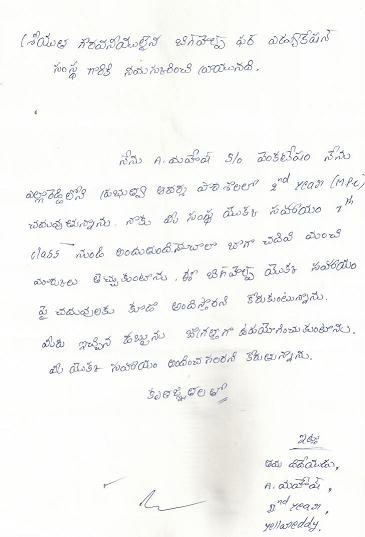 శ్రీయుత గౌరవనీయులైన బిగ్‌హెల్ప్ ఫర్ ఎడ్యుకేషన్
సంస్థ గారికి నమస్కరించి వ్రాయునది.
నేను A.మహేష్ S/o వెంకటేషం నేను
ఎల్లారెడ్డిలోని ప్రభుత్వ ఆదర్శ పాఠశాలలో 2nd Year (M.P.C)
చదువుతున్నాను. నాకు మీ సంస్థ యొక్క సహాయం 7th
class నుండి అందుతుంది. చాలా బాగా చదివి మంచి
మార్కులు తెచ్చుకుంటాను. ఈ బిగ్‌హెల్ప్ యొక్క సహాయం
పై చదువులకు కూడా అందిస్తారని కోరుకుంటున్నాను.
మీరు ఇచ్చిన డబ్బును జాగ్రత్తగా ఉపయోగించుకుంటాను.
మీ యొక్క సహాయం అందించగలరని కోరుతున్నాను.
కృతజ్ఞతలతో
ఇట్లు
తమ విధేయుడు,
A.మహేష్,
2nd Year,
Yellareddy.